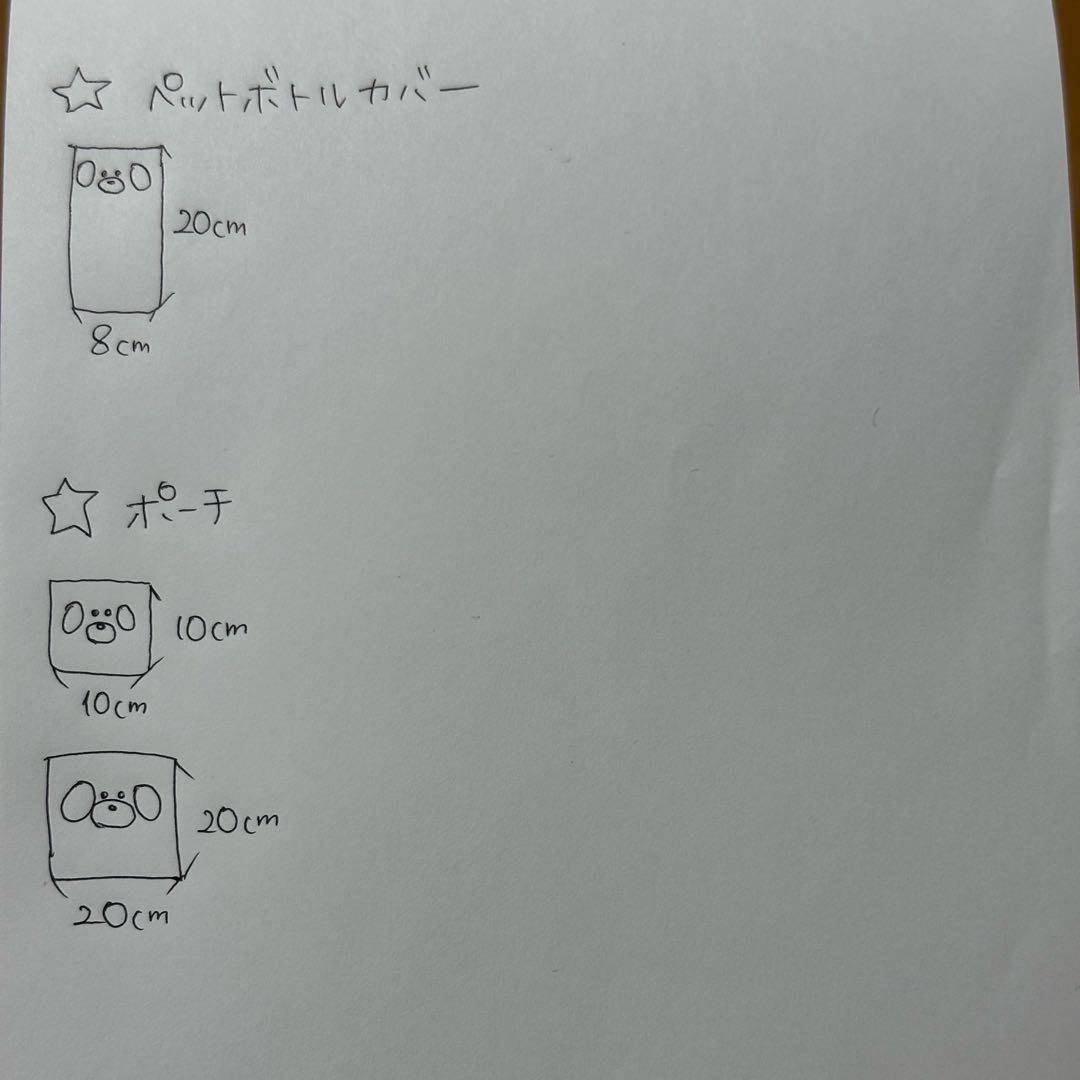 ☆ ペットボトルカバー
20cm
8cm
☆ ポーチ
10cm
10cm
20cm
20cm